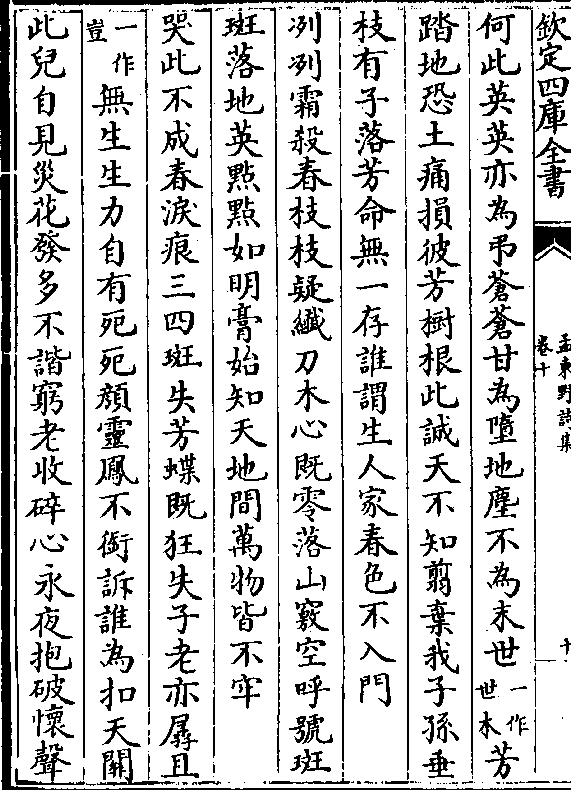 欽定四庫全書
孟東野詩集
卷十
十
何此英英亦為弔蒼蒼甘為墮地塵不為末世一作世末芳
踏地恐土痛損彼芳樹根此誠天不知翦棄我子孫垂
枝有子落芳命無一存誰謂生人家春色不入門
冽冽霜殺春枝枝疑纎刀木心既零落山竅空呼號斑
斑落地英點點如明膏始知天地間萬物皆不牢
哭此不成春淚痕三四斑失芳蝶既狂失子老亦孱且
一作豈無生生力自有死死顔靈鳳不銜訴誰為扣天關
此兒自見災花發多不諧窮老收碎心永夜抱破懷聲